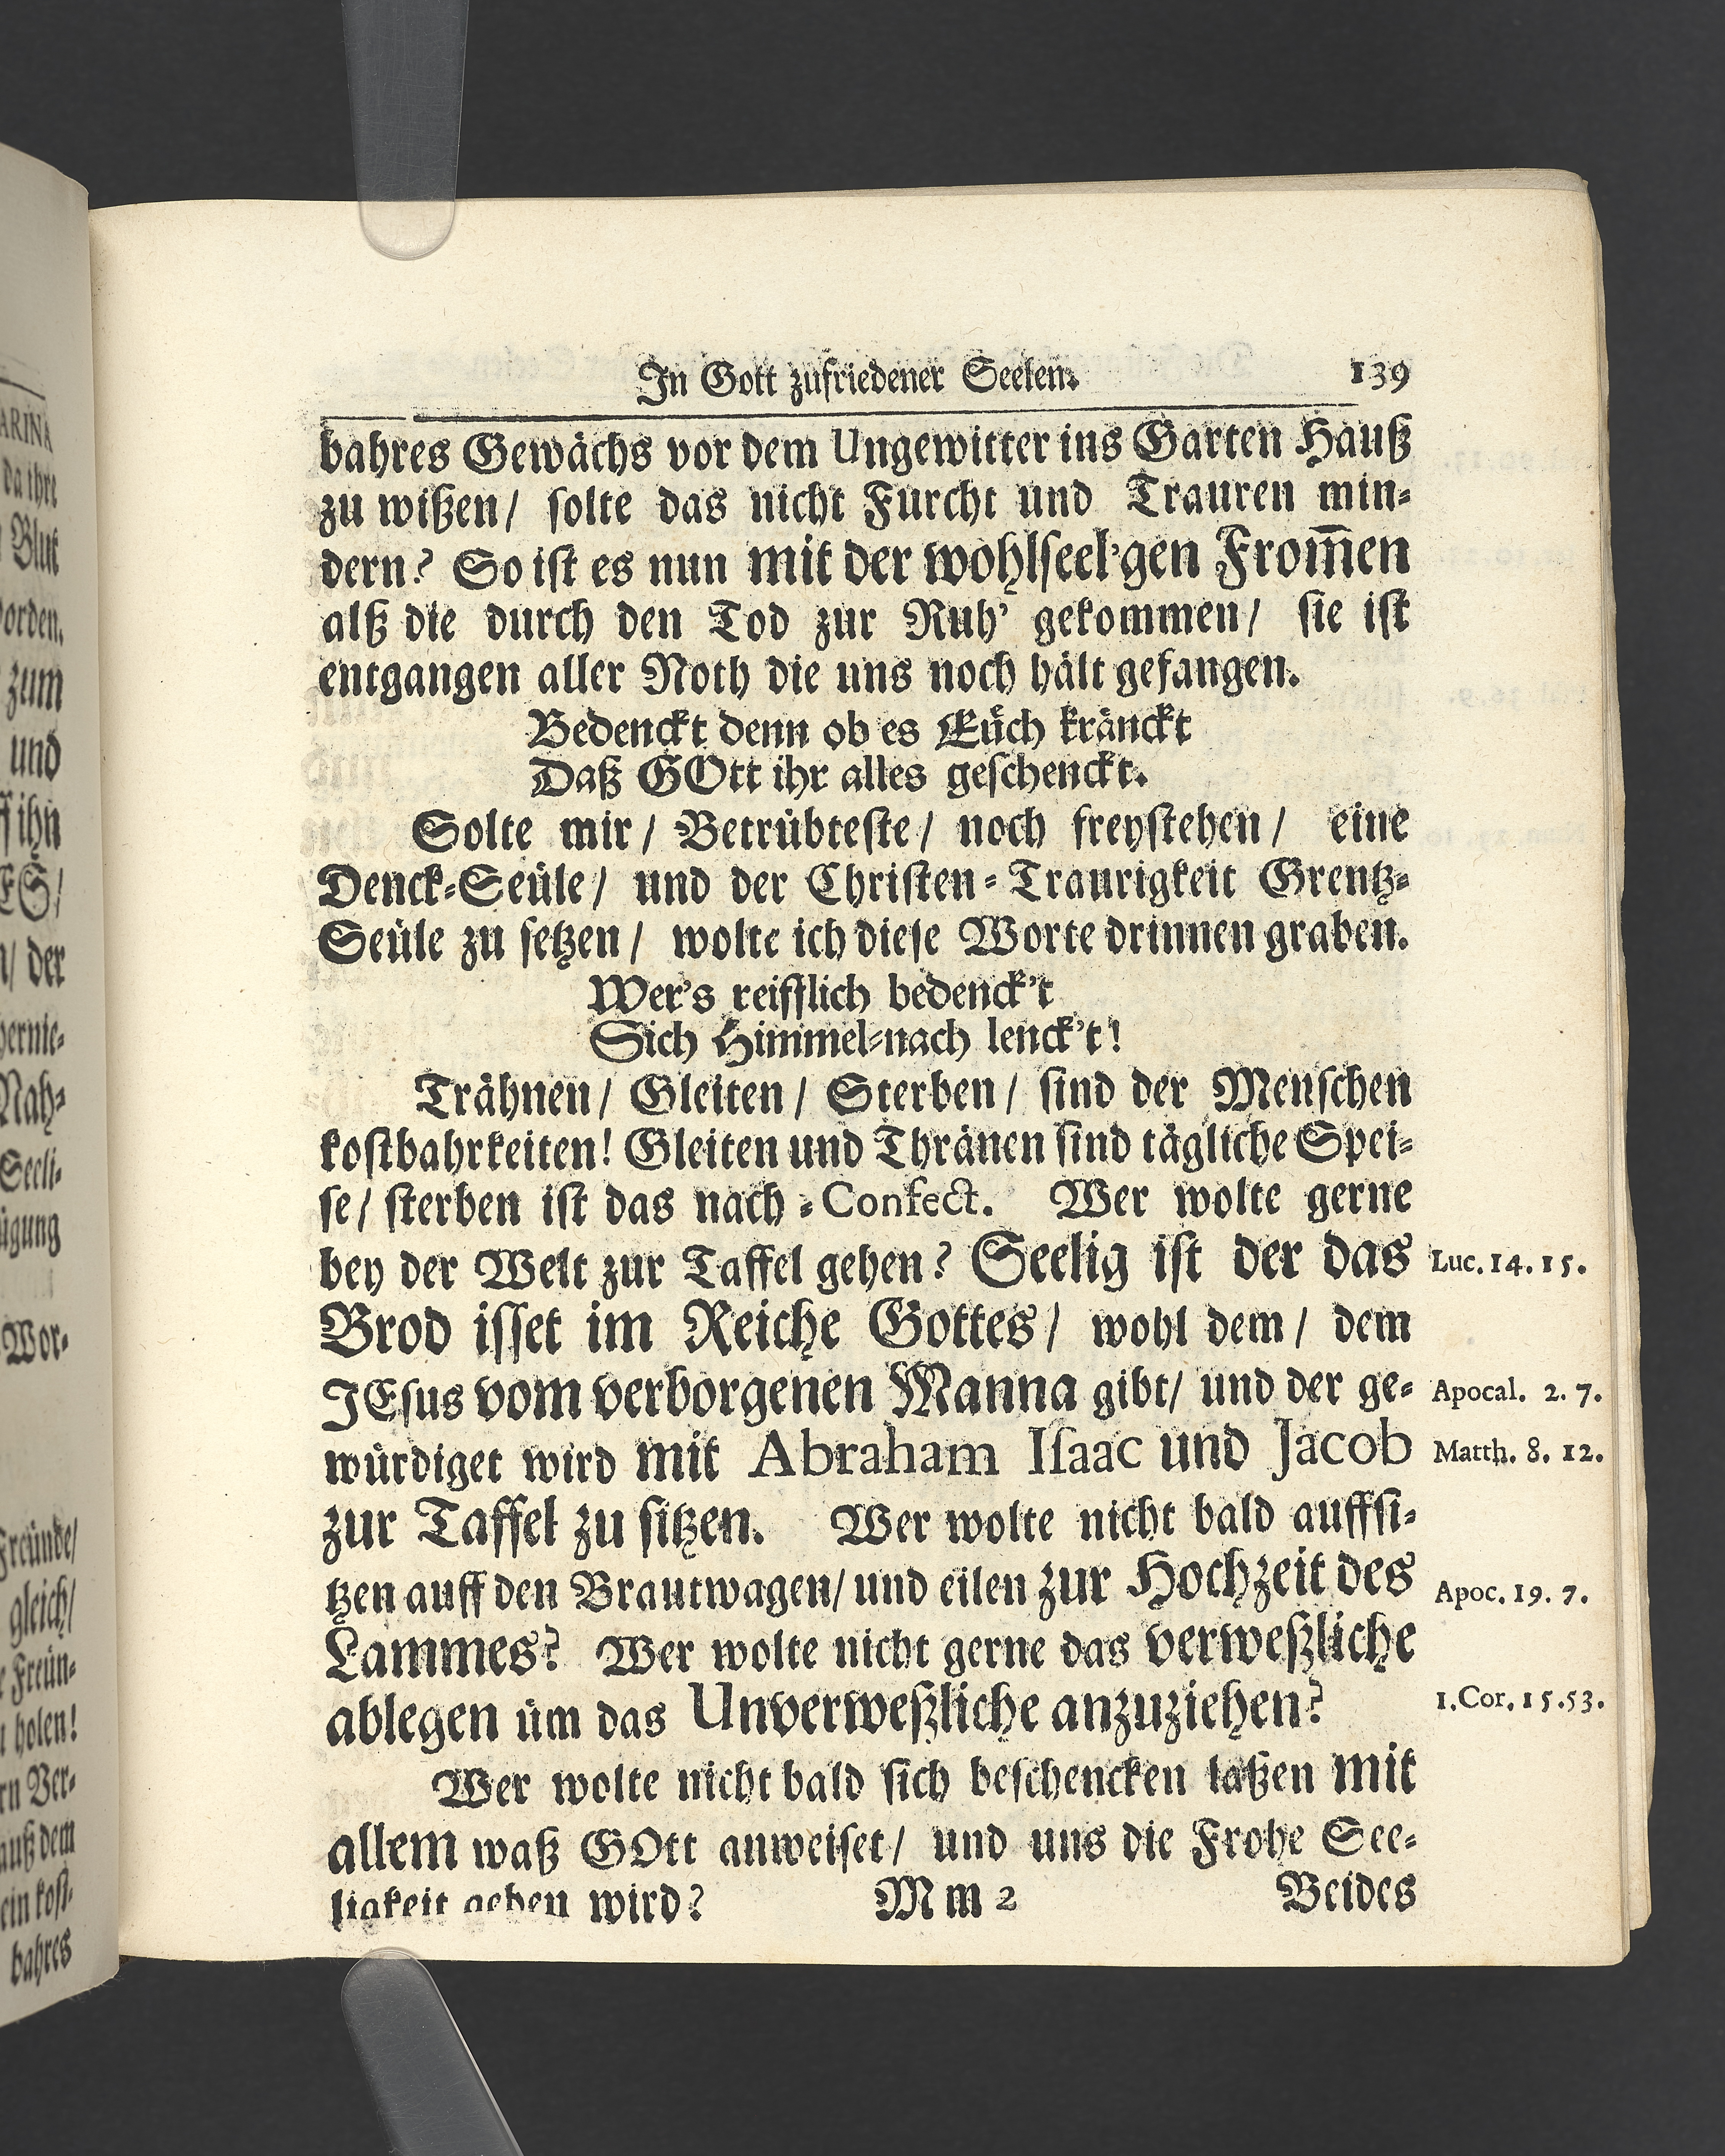 In Gott zufriedener Seelen. 139
bahres Gewächs vor dem Ungewitter ins Garten Hauß
zu wißen/ solte das nicht Furcht und Trauren min-
dern? So ist es nun mit der wohlseel'gen From̅en
alß die durch den Tod zur Ruh' gekommen/ sie ist
entgangen aller Noth die uns noch hält gefangen.
Bedenckt denn ob es Eüch kränckt
Daß GOtt ihr alles geschenckt.
Solte mir/ Betrübteste/ noch freystehen/ eine
Denck-Seüle/ und der Christen-Traurigkeit Grentz-
Seüle zu setzen/ wolte ich diese Worte drinnen graben.
Wer's reifflich bedenck't
Sich Himmel-nach lenck't!
Trähnen/ Gleiten/ Sterben/ sind der Menschen
kostbahrkeiten! Gleiten und Thränen sind tägliche Spei-
se/ sterben ist das nach-Confect. Wer wolte gerne
bey der Welt zur Taffel gehen? Seelig ist der das Luc. 14. 15.
Brod isset im Reiche Gottes/ wohl dem/ dem
JEsus vom verborgenen Manna gibt/ und der ge- Apocal. 2. 7.
würdiget wird mit Abraham Isaac und Jacob Matth. 8. 12.
zur Taffel zu sitzen. Wer wolte nicht bald auffsi-
tzen auff den Brautwagen/ und eilen zur Hochzeit des Apoc. 19. 7.
Lammes? Wer wolte nicht gerne das verweßliche
ablegen üm das Unverweßliche anzuziehen? 1. Cor. 15. 53.
Wer wolte nicht bald sich beschencken laßen mit
allem waß GOtt anweiset/ und uns die Frohe See-
ligkeit geben wird? M m 2 Beides
ARINA
da ihre
Blut
worden.
zum
und
ihn
ES/
/ der
Nah-
Seeli-
Wor-
Freünde/
gleich/
Freün-
holen!
Ver-
auß dem
ein kost-
bahres